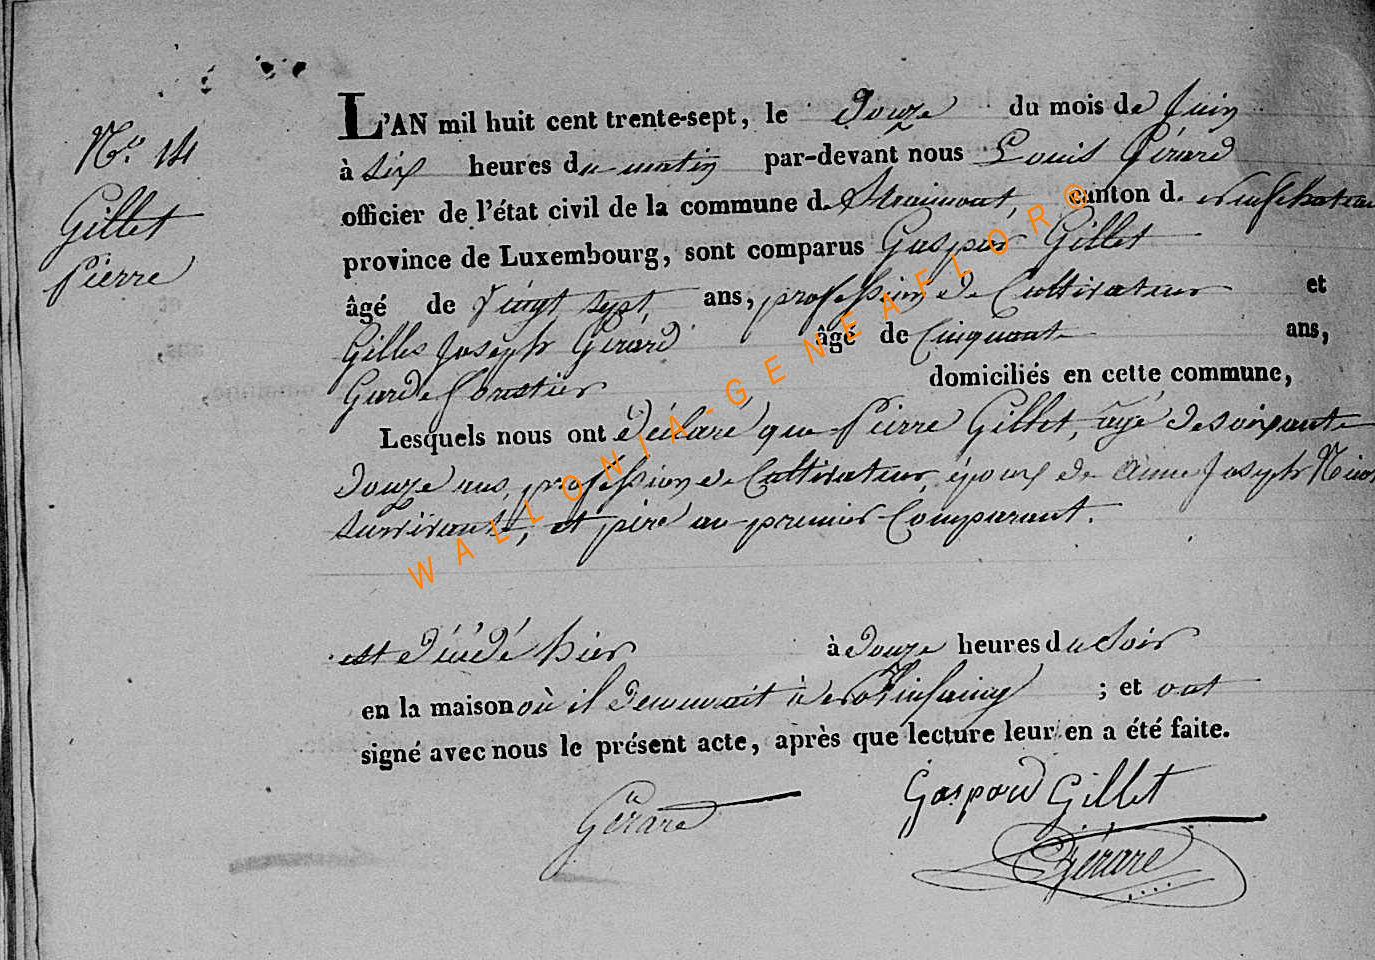 N.o 14
Gillet
Pierre
L'AN mil huit cent trente-sept, le Douze du mois de Juin
à six heures du matin par-devant nous Louis Gérard
officier de l'état civil de la commune d. Straimont, canton d. neufchateau
province de Luxembourg, sont comparus Gaspar Gillet
âgé de vingt sept ans, profession de Cultivateur et
Gilles Joseph Gérard âgé de Cinquante ans,
Garde forestier domiciliés en cette commune,
Lesquels nous ont déclaré que Pierre Gillet, agé de soixante
Douze ans, profession de Cultivateur, époux de anne Joseph
survivante, et père au premier Comparant.
est décédé hier à douze heures du soir
en la maison où il demeurait à ; et ont
signé avec nous le présent acte, après que lecture leur en a été faite.
Gérard
Gaspard Gillet
Gérard
WALLONIA-GENEAFLOR©